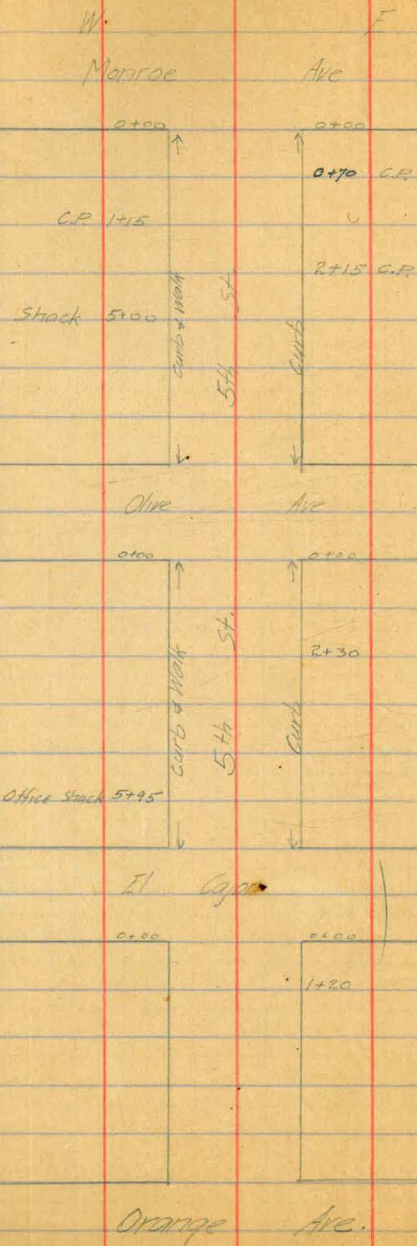 W. E
Monroe Ave
0+00 0+00
0+70 C.P.
C.P. 1+15
2+15 C.P.
Shack 5+00
Curb & Walk
5th St.
Curb
Olive Ave
0+00 0+00
2+30
Curb & Walk
5th St.
Curb
Office Shack 5+95
El Cajon
0+00 0+00
1+20
Orange Ave.